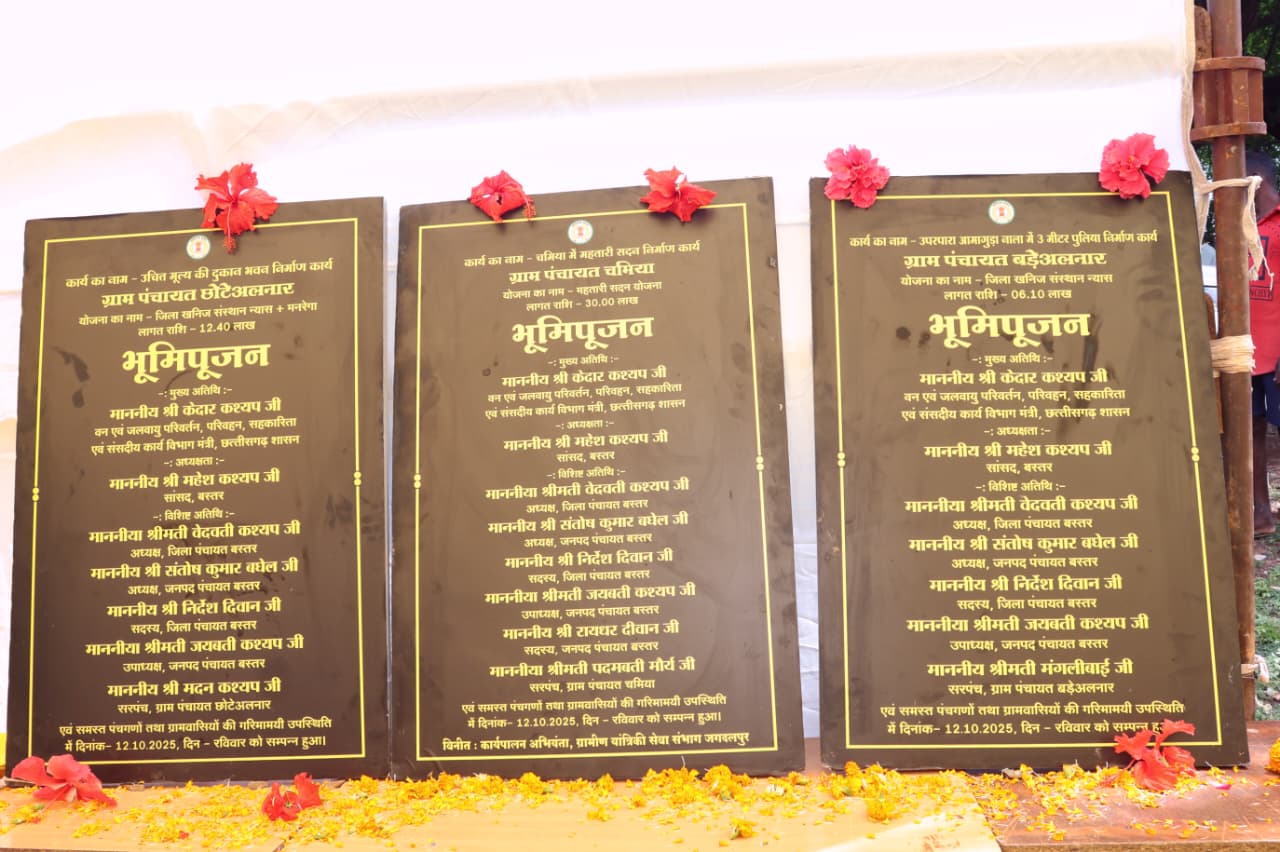 कार्य का नाम – उचित मूल्य की दुकान भवन निर्माण कार्य
ग्राम पंचायत छोटेअलनार
योजना का नाम – जिला खनिज संस्थान न्यास + मनरेगा
लागत राशि – 12.40 लाख
भूमिपूजन
-: मुख्य अतिथि :-
माननीय श्री केदार कश्यप जी
वन एवं जलवायु परिवर्तन, परिवहन, सहकारिता
एवं संसदीय कार्य विभाग मंत्री, छत्तीसगढ़ शासन
-: अध्यक्षता :-
माननीय श्री महेश कश्यप जी
सांसद, बस्तर
-: विशिष्ट अतिथि :-
माननीया श्रीमती वेदवती कश्यप जी
अध्यक्ष, जिला पंचायत बस्तर
माननीय श्री संतोष कुमार बघेल जी
अध्यक्ष, जनपद पंचायत बस्तर
माननीय श्री निर्देश दिवान जी
सदस्य, जिला पंचायत बस्तर
माननीया श्रीमती जयबती कश्यप जी
उपाध्यक्ष, जनपद पंचायत बस्तर
माननीय श्री मदन कश्यप जी
सरपंच, ग्राम पंचायत छोटेअलनार
एवं समस्त पंचगणों तथा ग्रामवासियों की गरिमामयी उपस्थिति
में दिनांक– 12.10.2025, दिन – रविवार को सम्पन्न हुआ।
कार्य का नाम – चमिया में महतारी सदन निर्माण कार्य
ग्राम पंचायत चमिया
योजना का नाम – महतारी सदन योजना
लागत राशि – 30.00 लाख
भूमिपूजन
-: मुख्य अतिथि :-
माननीय श्री केदार कश्यप जी
वन एवं जलवायु परिवर्तन, परिवहन, सहकारिता
एवं संसदीय कार्य विभाग मंत्री, छत्तीसगढ़ शासन
-: अध्यक्षता :-
माननीय श्री महेश कश्यप जी
सांसद, बस्तर
-: विशिष्ट अतिथि :-
माननीया श्रीमती वेदवती कश्यप जी
अध्यक्ष, जिला पंचायत बस्तर
माननीय श्री संतोष कुमार बघेल जी
अध्यक्ष, जनपद पंचायत बस्तर
माननीय श्री निर्देश दिवान जी
सदस्य, जिला पंचायत बस्तर
माननीया श्रीमती जयबती कश्यप जी
उपाध्यक्ष, जनपद पंचायत बस्तर
माननीय श्री रायधर दीवान जी
सदस्य, जनपद पंचायत बस्तर
माननीया श्रीमती पदमबती मौर्य जी
सरपंच, ग्राम पंचायत चमिया
एवं समस्त पंचगणों तथा ग्रामवासियों की गरिमामयी उपस्थिति
में दिनांक– 12.10.2025, दिन – रविवार को सम्पन्न हुआ।
विनीत : कार्यपालन अभियंता, ग्रामीण यांत्रिकी सेवा संभाग जगदलपुर
कार्य का नाम – उपरपारा आमागुड़ा नाला में 3 मीटर पुलिया निर्माण कार्य
ग्राम पंचायत बड़ेअलनार
योजना का नाम – जिला खनिज संस्थान न्यास
लागत राशि – 06.10 लाख
भूमिपूजन
-: मुख्य अतिथि :-
माननीय श्री केदार कश्यप जी
वन एवं जलवायु परिवर्तन, परिवहन, सहकारिता
एवं संसदीय कार्य विभाग मंत्री, छत्तीसगढ़ शासन
-: अध्यक्षता :-
माननीय श्री महेश कश्यप जी
सांसद, बस्तर
-: विशिष्ट अतिथि :-
माननीया श्रीमती वेदवती कश्यप जी
अध्यक्ष, जिला पंचायत बस्तर
माननीय श्री संतोष कुमार बघेल जी
अध्यक्ष, जनपद पंचायत बस्तर
माननीय श्री निर्देश दिवान जी
सदस्य, जिला पंचायत बस्तर
माननीया श्रीमती जयबती कश्यप जी
उपाध्यक्ष, जनपद पंचायत बस्तर
माननीय श्रीमती मंगलीबाई जी
सरपंच, ग्राम पंचायत बड़ेअलनार
एवं समस्त पंचगणों तथा ग्रामवासियों की गरिमामयी उपस्थिति
में दिनांक– 12.10.2025, दिन – रविवार को सम्पन्न हुआ।